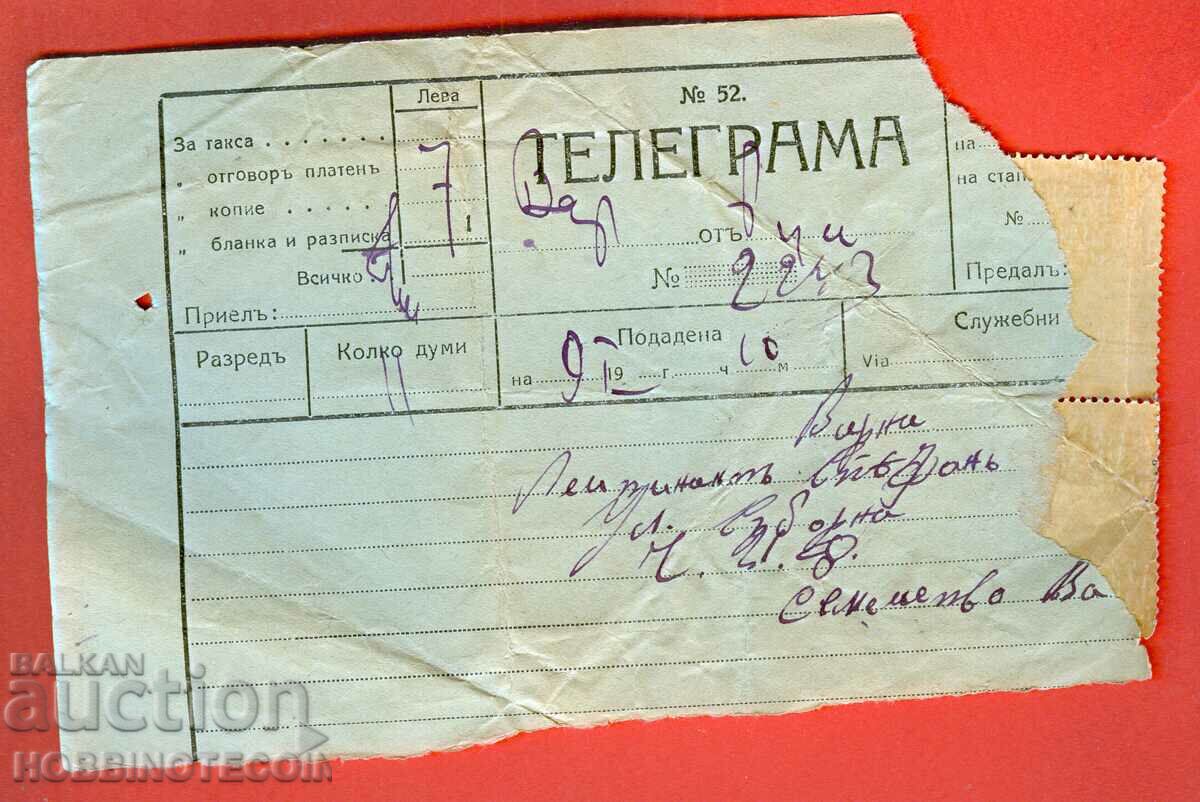 Лева
№ 52.
ТЕЛЕГРАМА
За такса . . . . . .
„ отговоръ платенъ
7
„ копие . . . . .
„ бланка и разписка
1
Всичко
Приелъ:
Вар
отъ
№ 2243
на
на стан
№
Предалъ:
Разредъ
Колко думи
11
Подадена
на 9 I 19 г. ч 10 м
Служебни
Via
Варна
Лейтинантъ Стефанъ
Ул. Сѫборна
Ч. Н. Г.
Семейство Ва
BALKAN
auction
HOBBINOTECOIN